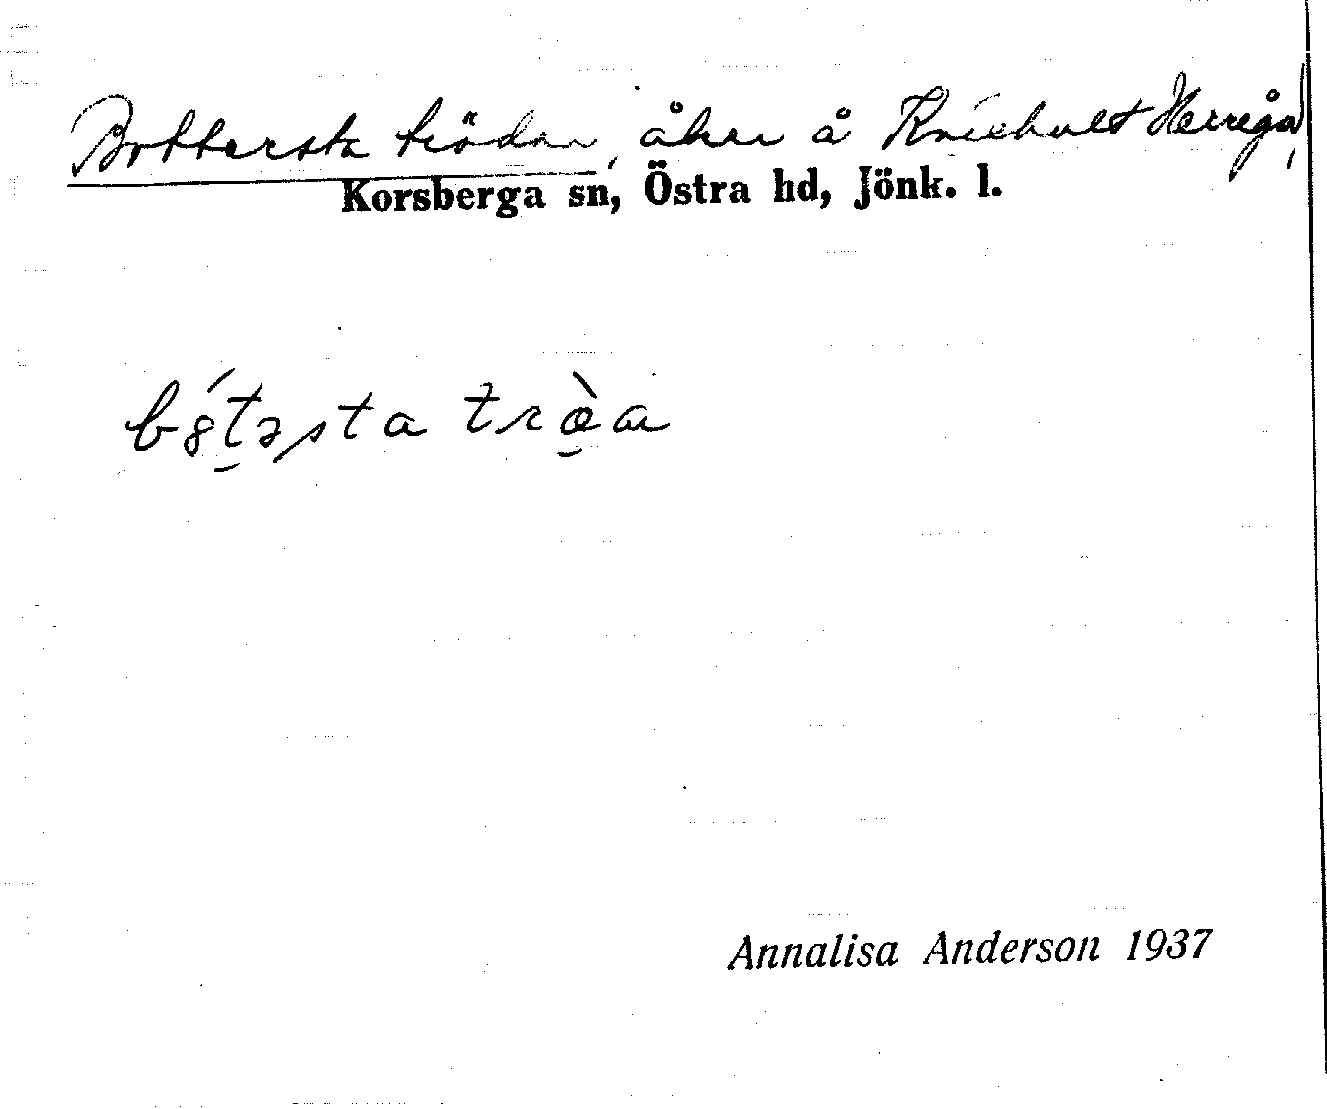 Bottersta trödan, åker å Kniehult Herregård,
Korsberga sn, Östra hd, Jönk. l.
bó̤təsta trœ̀a
Annalisa Anderson 1937